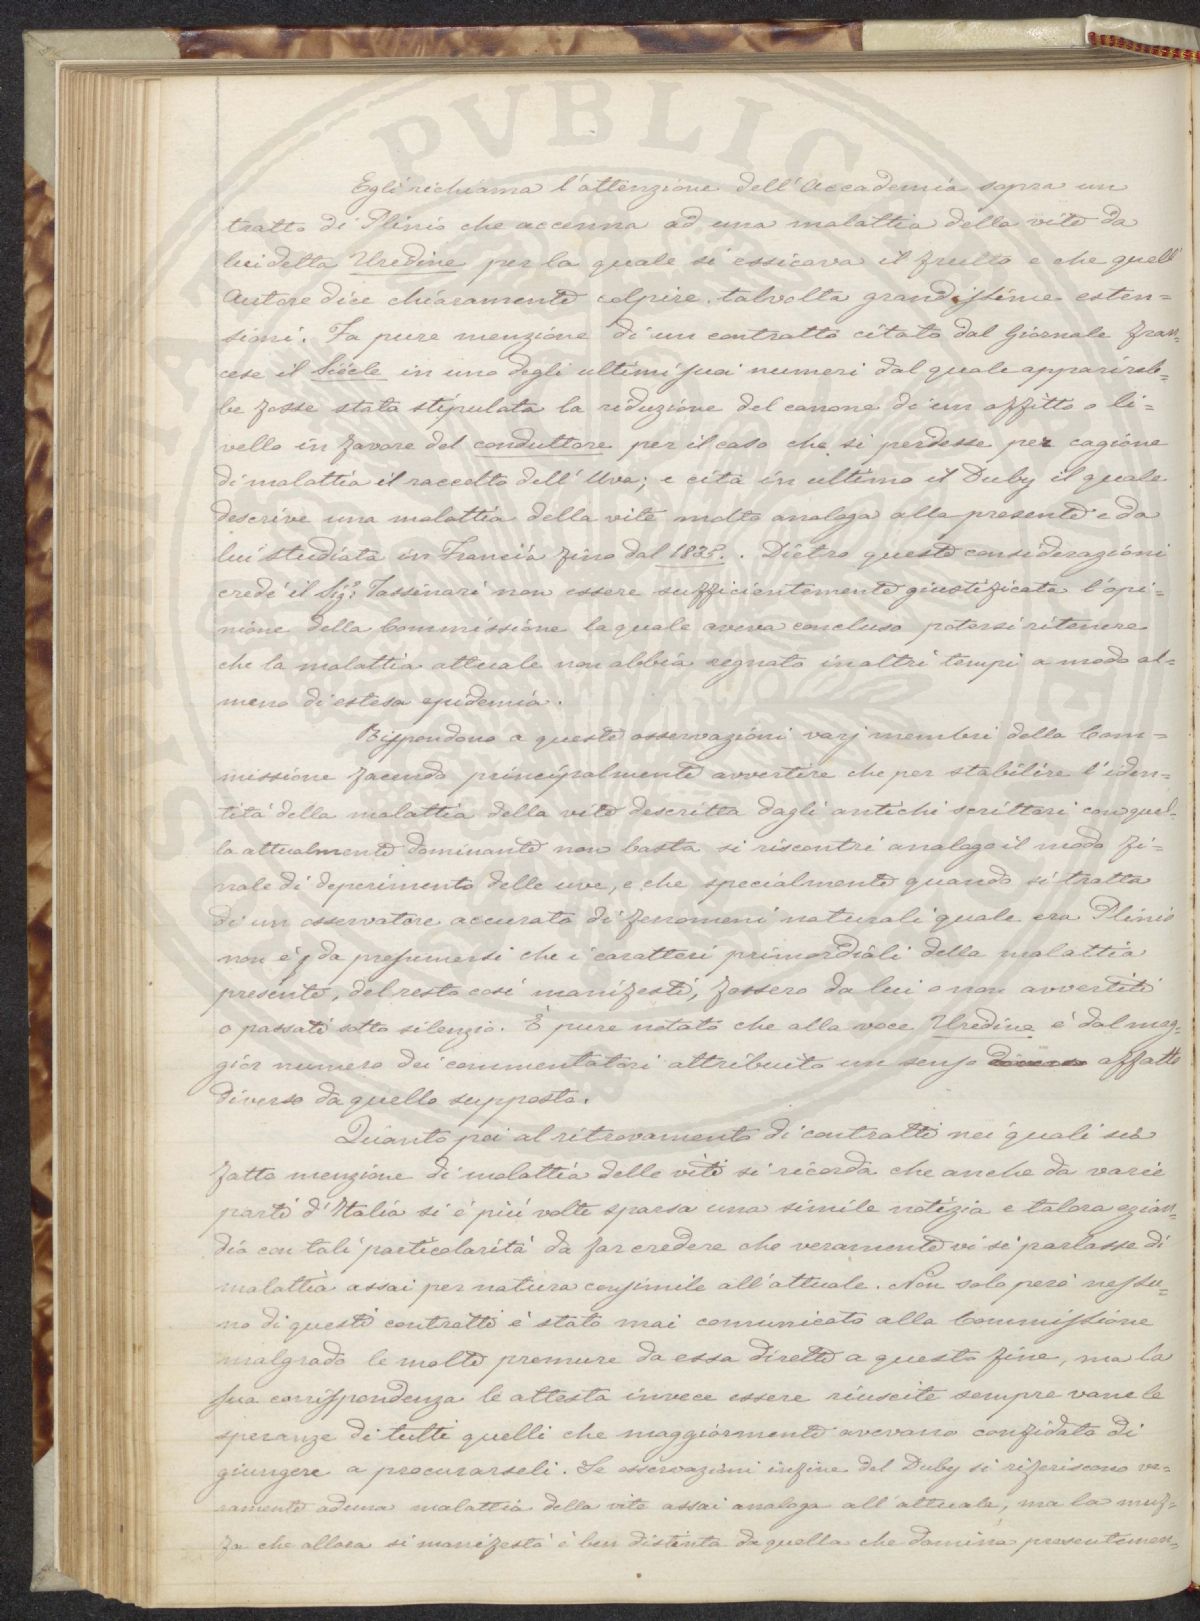 Egli richiama l'attenzione dell'Accademia sopra un
tratto di Plinio che accenna ad una malattia della vite da
lui detta Uredine per la quale si essicava il frutto e che quell'
Autore dice chiaramente colpire talvolta grandissime esten=
sioni. Fa pure menzione di un contratto citato dal Giornale fran=
cese il Siècle in uno degli ultimi suoi numeri dal quale apparireb=
be fosse stata stipulata la riduzione del canone di un affitto o li=
vello in favore del conduttore per il caso che si perdesse per cagione
di malattia il raccolto dell'Uva; e cita in ultimo il Duby il quale
descrive una malattia della vite molto analoga alla presente e da
lui studiata in Francia fino dal . Dietro queste considerazioni
crede il Sig.r Tassinari non essere sufficientemente giustificata l'opi=
nione della Commissione la quale aveva concluso potersi ritenere
che la malattia attuale non abbia regnato in altri tempi a modo al=
meno di estesa epidemia.
Rispondono a queste osservazioni varj membri della Com=
missione facendo principalmente avvertire che per stabilire l'iden=
tità della malattia della vite descritta dagli antichi scrittori con quel=
la attualmente dominante non basta si riscontri analogo il modo fi=
nale di deperimento delle uve, e che specialmente quando si tratta
di un osservatore accurato di fenomeni naturali quale era Plinio
non è da presumersi che i caratteri primordiali della malattia
presente, del resto così manifesti, fossero da lui o non avvertiti
o passati sotto silenzio. È pure notato che alla voce Uredine è dal mag=
gior numero dei commentatori attribuito un senso affatto
diverso da quello supposto.
Quanto poi al ritrovamento di contratti nei quali sia
fatta menzione di malattia delle viti si ricorda che anche da varie
parti d'Italia si è più volte sparsa una simile notizia e talora ezian=
dio con tali particolarità da far credere che veramente vi si parlasse di
malattia assai per natura consimile all'attuale. Non solo però nessu=
no di questi contratti è stato mai comunicato alla Commissione
malgrado le molte premure da essa dirette a questo fine, ma la
sua corrispondenza le attesta invece essere riuscite sempre vane le
speranze di tutti quelli che maggiormente avevano confidato di
giungere a procurarseli. Le osservazioni infine del Duby si riferiscono ve=
ramente ad una malattia della vite assai analoga all'attuale, ma la muf=
fa che allora si manifestò è ben distinta da quella che domina presentemen=